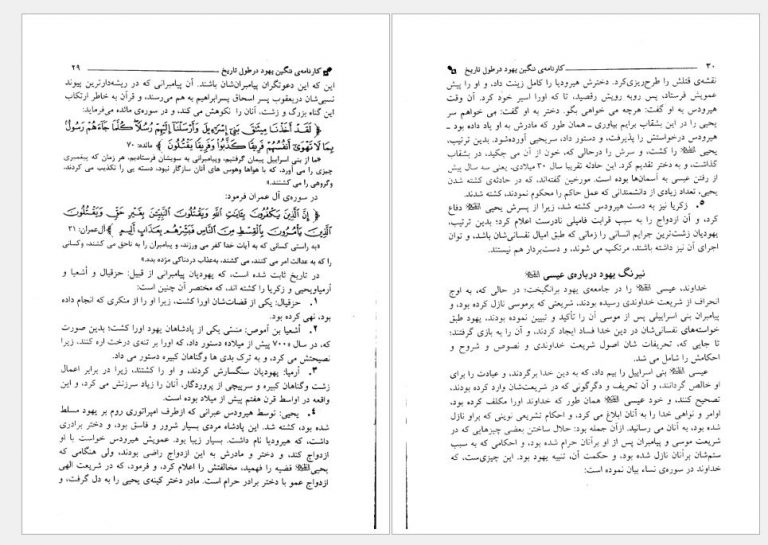 کارنامه‌ی ننگین یهود در طول تاریخ ۲۹
این که این دعوتگران پیامبران‌شان باشند. آن پیامبرانی که در ریشه‌دارترین پیوند
نسبی‌شان دریعقوب پسر اسحاق پسرابراهیم به هم می‌رسند، و قرآن به خاطر ارتکاب
این گناه بزرگ و زشت، آنان را نکوهش می کند، و در سوره‌ی مائده می‌فرماید:
﴿ لَقَدْ أَخَذْنَا مِيثَٰقَ بَنِيٓ إِسْرَٰٓءِيلَ وَأَرْسَلْنَآ إِلَيْهِمْ رُسُلًا كُلَّمَا جَآءَهُمْ رَسُولٌۢ
بِمَا لَا تَهْوَىٰٓ أَنفُسُهُمْ فَرِيقًا كَذَّبُوا۟ وَفَرِيقًا يَقْتُلُونَ ﴾ مائده: ۷۰
«ما از بنی اسراییل پیمان گرفتیم، وپیامبرانی به سویشان فرستادیم، هر زمان که پیغمبری
چیزی را می آورد، که با هواها وهوس های آنان سازگار نبود، دسته یی را تکذیب می کردند،
وگروهی را می کشتند.»
در سوره‌ی آل عمران فرمود:
﴿ إِنَّ ٱلَّذِينَ يَكْفُرُونَ بِـَٔايَٰتِ ٱللَّهِ وَيَقْتُلُونَ ٱلنَّبِيِّـۧنَ بِغَيْرِ حَقٍّ وَيَقْتُلُونَ
ٱلَّذِينَ يَأْمُرُونَ بِٱلْقِسْطِ مِنَ ٱلنَّاسِ فَبَشِّرْهُم بِعَذَابٍ أَلِيمٍ ﴾ آل‌عمران: ۲۱
«به راستی کسانی که به آیات خدا کفر می ورزند، و پیامبران را به ناحق می کشند، وکسانی
را که به عدالت امر می کنند، می کشند، به‌عذاب دردناکی مژده بده.»
در تاریخ ثابت شده است، که یهودیان پیامبرانی از قبیل: حزقیال و أشعیا و
أرمیاویحیی و زکریا را کشته اند، که مختصر آن چنین است:
۱. حزقیال: یکی از قضات‌شان اورا کشت، زیرا او را از منکری که انجام داده
بود، نهی کرده بود.
۲. أشعیا بن أموص: منسی یکی از پادشاهان یهود اورا کشت؛ بدین صورت
که، در سال «۷۰۰ پیش از میلاد» دستور داد، که اورا بر تنه‌ی درخت اره کنند، زیرا
نصیحتش می کرد، و به ترک بدی ها وگناهان کبیره دستور می داد.
۳. أرمیا: یهودیان سنگسارش کردند، و او را کشتند، زیرا در برابر اعمال
زشت وگناهان کبیره و سرپیچی از پروردگار، آنان را زیاد سرزنش می کرد، و این
واقعه در اواسط قرن هفتم پیش از میلاد بوده است.
۴. یحیی: توسط هیرودس عبرانی که ازطرف امپراتوری روم بر یهود مسلط
شده بود، کشته شد. این پادشاه مردی بسیار شرور و فاسق بود، و دختر برادری
داشت، که هیرودیا نام داشت. بسیار زیبا بود. عمویش هیرودس خواست با او
ازدواج کند، و دختر و مادرش به این ازدواج راضی بودند، ولی هنگامی که
یحیی قضیه را فهمید، مخالفتش را اعلام کرد، و فرمود، که در شریعت الهی
ازدواج عمو با دختر برادر حرام است. مادر دختر کینه‌ی یحیی را به دل گرفت، و
۳۰ کارنامه‌ی ننگین یهود در طول تاریخ
نقشه‌ی قتلش را طرح‌ریزی‌کرد. دخترش هیرودیا را کامل زینت داد، و او را پیش
عمویش فرستاد، پس روبه رویش رقصید، تا که اورا اسیر خود کرد. آن وقت
هیرودس به او گفت: هرچه می خواهی بگو. دختر به او گفت: می خواهم سر
یحیی را در این بشقاب برایم بیاوری ـ همان طور که مادرش به او یاد داده بود ـ
هیرودس درخواستش را پذیرفت، و دستور داد، سریحیی آورده‌شود. بدین ترتیب،
یحیی را کشت، و سرش را درحالی که، خون از آن می چکید، در بشقاب
گذاشت، و به دختر تقدیم کرد. این حادثه تقریبا سال ۳۰ میلادی، یعنی سه سال پیش
از رفتن عیسی به آسمان‌ها بوده است. مورخین گفته‌اند، که در حادثه‌ی کشته شدن
یحیی، تعداد زیادی از دانشمندانی که عمل حاکم را محکوم نمودند، کشته شدند.
۵. زکریا نیز به دست هیرودس کشته شد، زیرا از پسرش یحیی دفاع
کرد، و آن ازدواج را به سبب قرابت فامیلی نادرست اعلام کرد؛ بدین ترتیب،
یهودیان زشت‌ترین جرایم انسانی را زمانی که طبق امیال نفسانی‌شان باشد، و توان
اجرای آن نیز داشته باشند، مرتکب می شوند، و دست‌بردار هم نیستند.
نیرنگ یهود درباره‌ی عیسی
خداوند، عیسی را در جامعه‌ی یهود برانگیخت؛ در حالی که، به اوج
انحراف از شریعت خداوندی رسیده بودند. شریعتی که برموسی نازل کرده بود، و
پیامبران بنی اسراییلی پس از موسی آن را تأکید و تبیین نموده بودند. یهود طبق
خواسته‌های نفسانی‌شان در دین خدا فساد ایجاد کردند، و آن را به بازی گرفتند؛
تا جایی که، تحریفات شان اصول شریعت خداوندی و نصوص و شروح و
احکامش را شامل می شد.
عیسی بنی اسراییل را بیم داد، که به دین خدا برگردند، و عبادت را برای
او خالص گردانند، و آن تحریف و دگرگونی که در شریعت‌شان وارد کرده بودند،
تصحیح کنند، و خود عیسی همان طور که خداوند اورا مکلف کرده بود،
اوامر و نواهی خدا را به آنان ابلاغ می کرد، و احکام تشریعی نوینی که براو نازل
شده بود، به آنان می رسانید. ازآن جمله بود: حلال ساختن بعضی چیزهایی که در
شریعت موسی و پیامبران پس از او برآنان حرام شده بود، و احکامی که به سبب
ستم‌شان برآنان نازل شده بود، و حکمت آن، تنبیه یهود بود. این چیزی‌ست، که
خداوند در سوره‌ی نساء بیان نموده است: